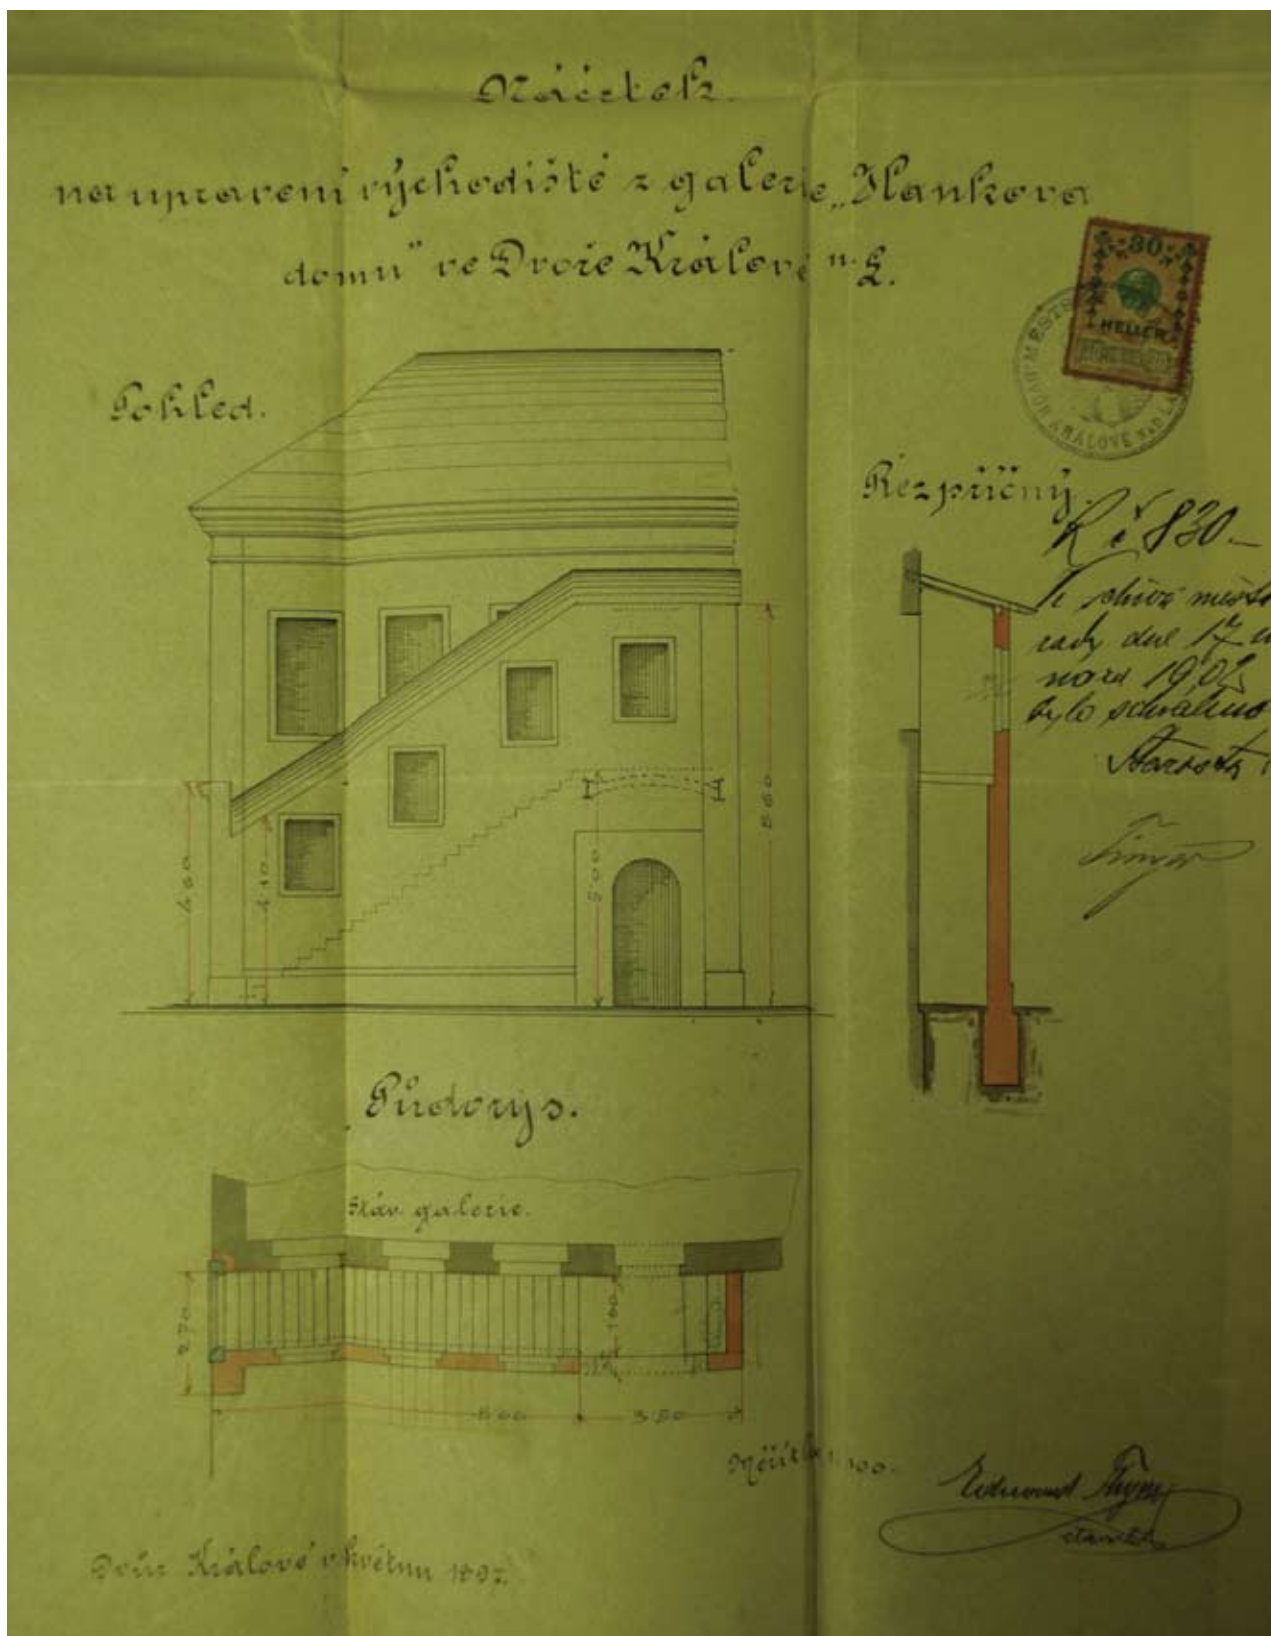 Náčrtek.
na upravení východiště z galerie „Hankova
domu" ve Dvoře Králové n. L.
30
HELLER
MĚSTS
KRÁLOVÉ NAD LA
Pohled.
Řez příčný.
K č 830.—
rady dne 17 ú
nora 1902
bylo schváleno
Starosta
860
500
410
Půdorys.
Stáv. galerie.
270
160
800
350
Měřítko 1:100.
Eduard
stavitel
Dvůr Králové v květnu 1897